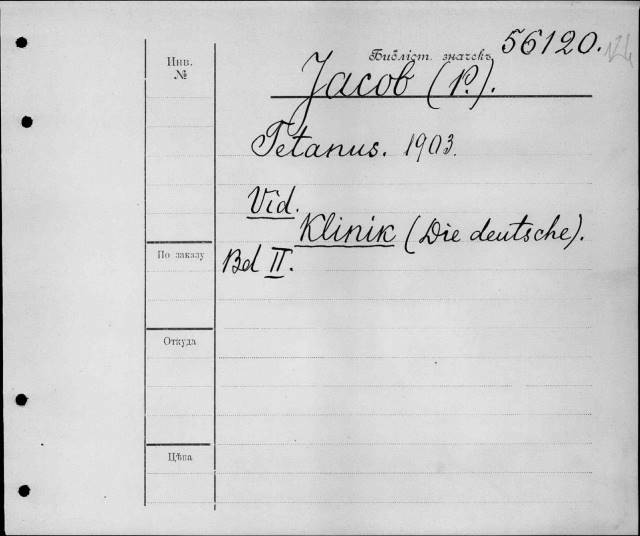 Библіот. значекъ 56120.
Инв.
№
Jacob (P.).
Tetanus. 1903.
Vid.
Klinik (Die deutsche).
По заказу
Bd II.
Откуда
Цѣна